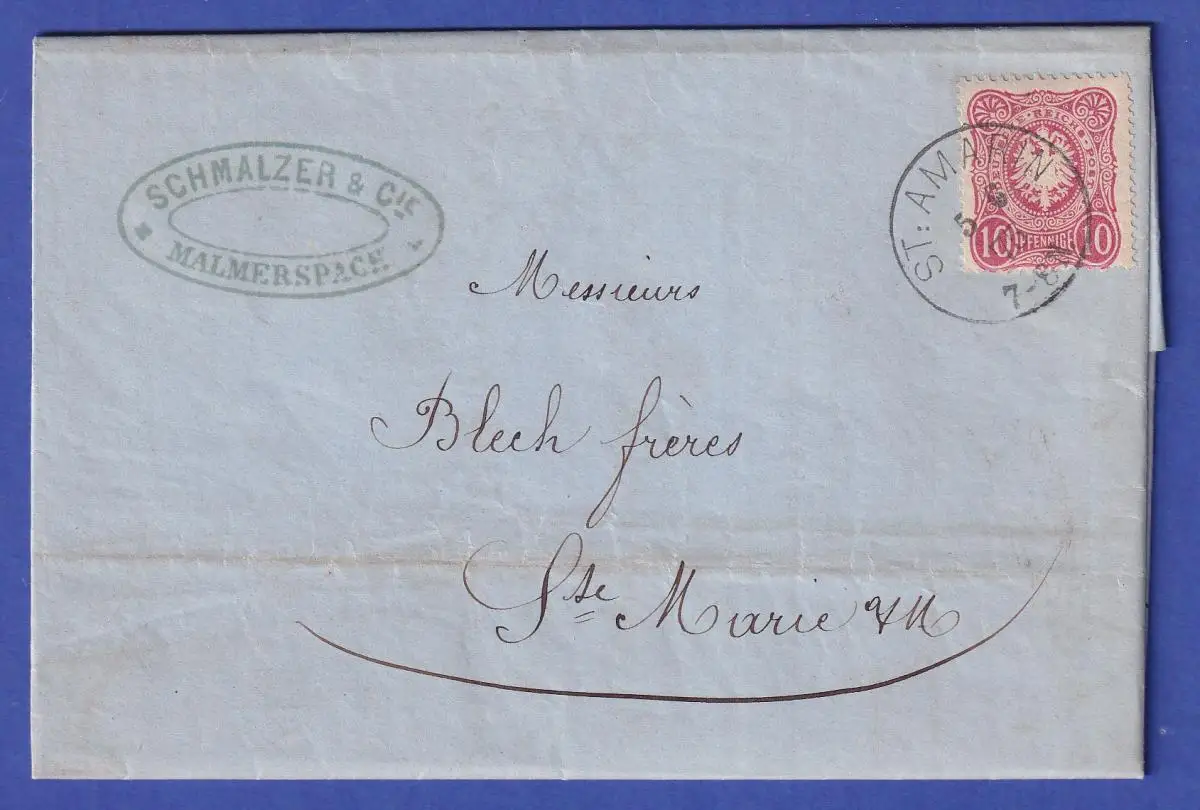 SCHMALZER & CIE
MALMERSPACH
ST: AMARIN
5
7-8
REICHS
10 PFENNIGE 10
Messieurs
Blech frères
Ste Marie a/M